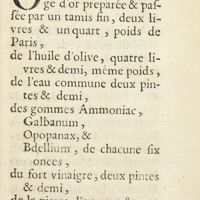 Oge d'or preparée & pas-
sée par un tamis fin, deux li-
vres & un quart, poids de
Paris,
de l'huile d'olive, quatre li-
vres & demi, même poids,
de l'eau commune deux pin-
tes & demi,
des gommes Ammoniac,
Galbanum,
Opopanax, &
Bdellium, de chacune six
onces,
du fort vinaigre, deux pintes
& demi,